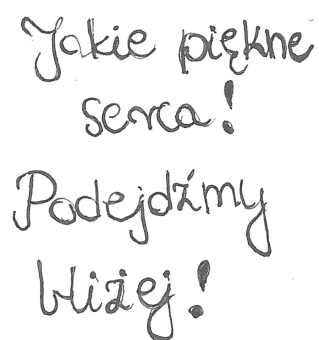 Jakie piękne
serca!
Podejdźmy
bliżej!